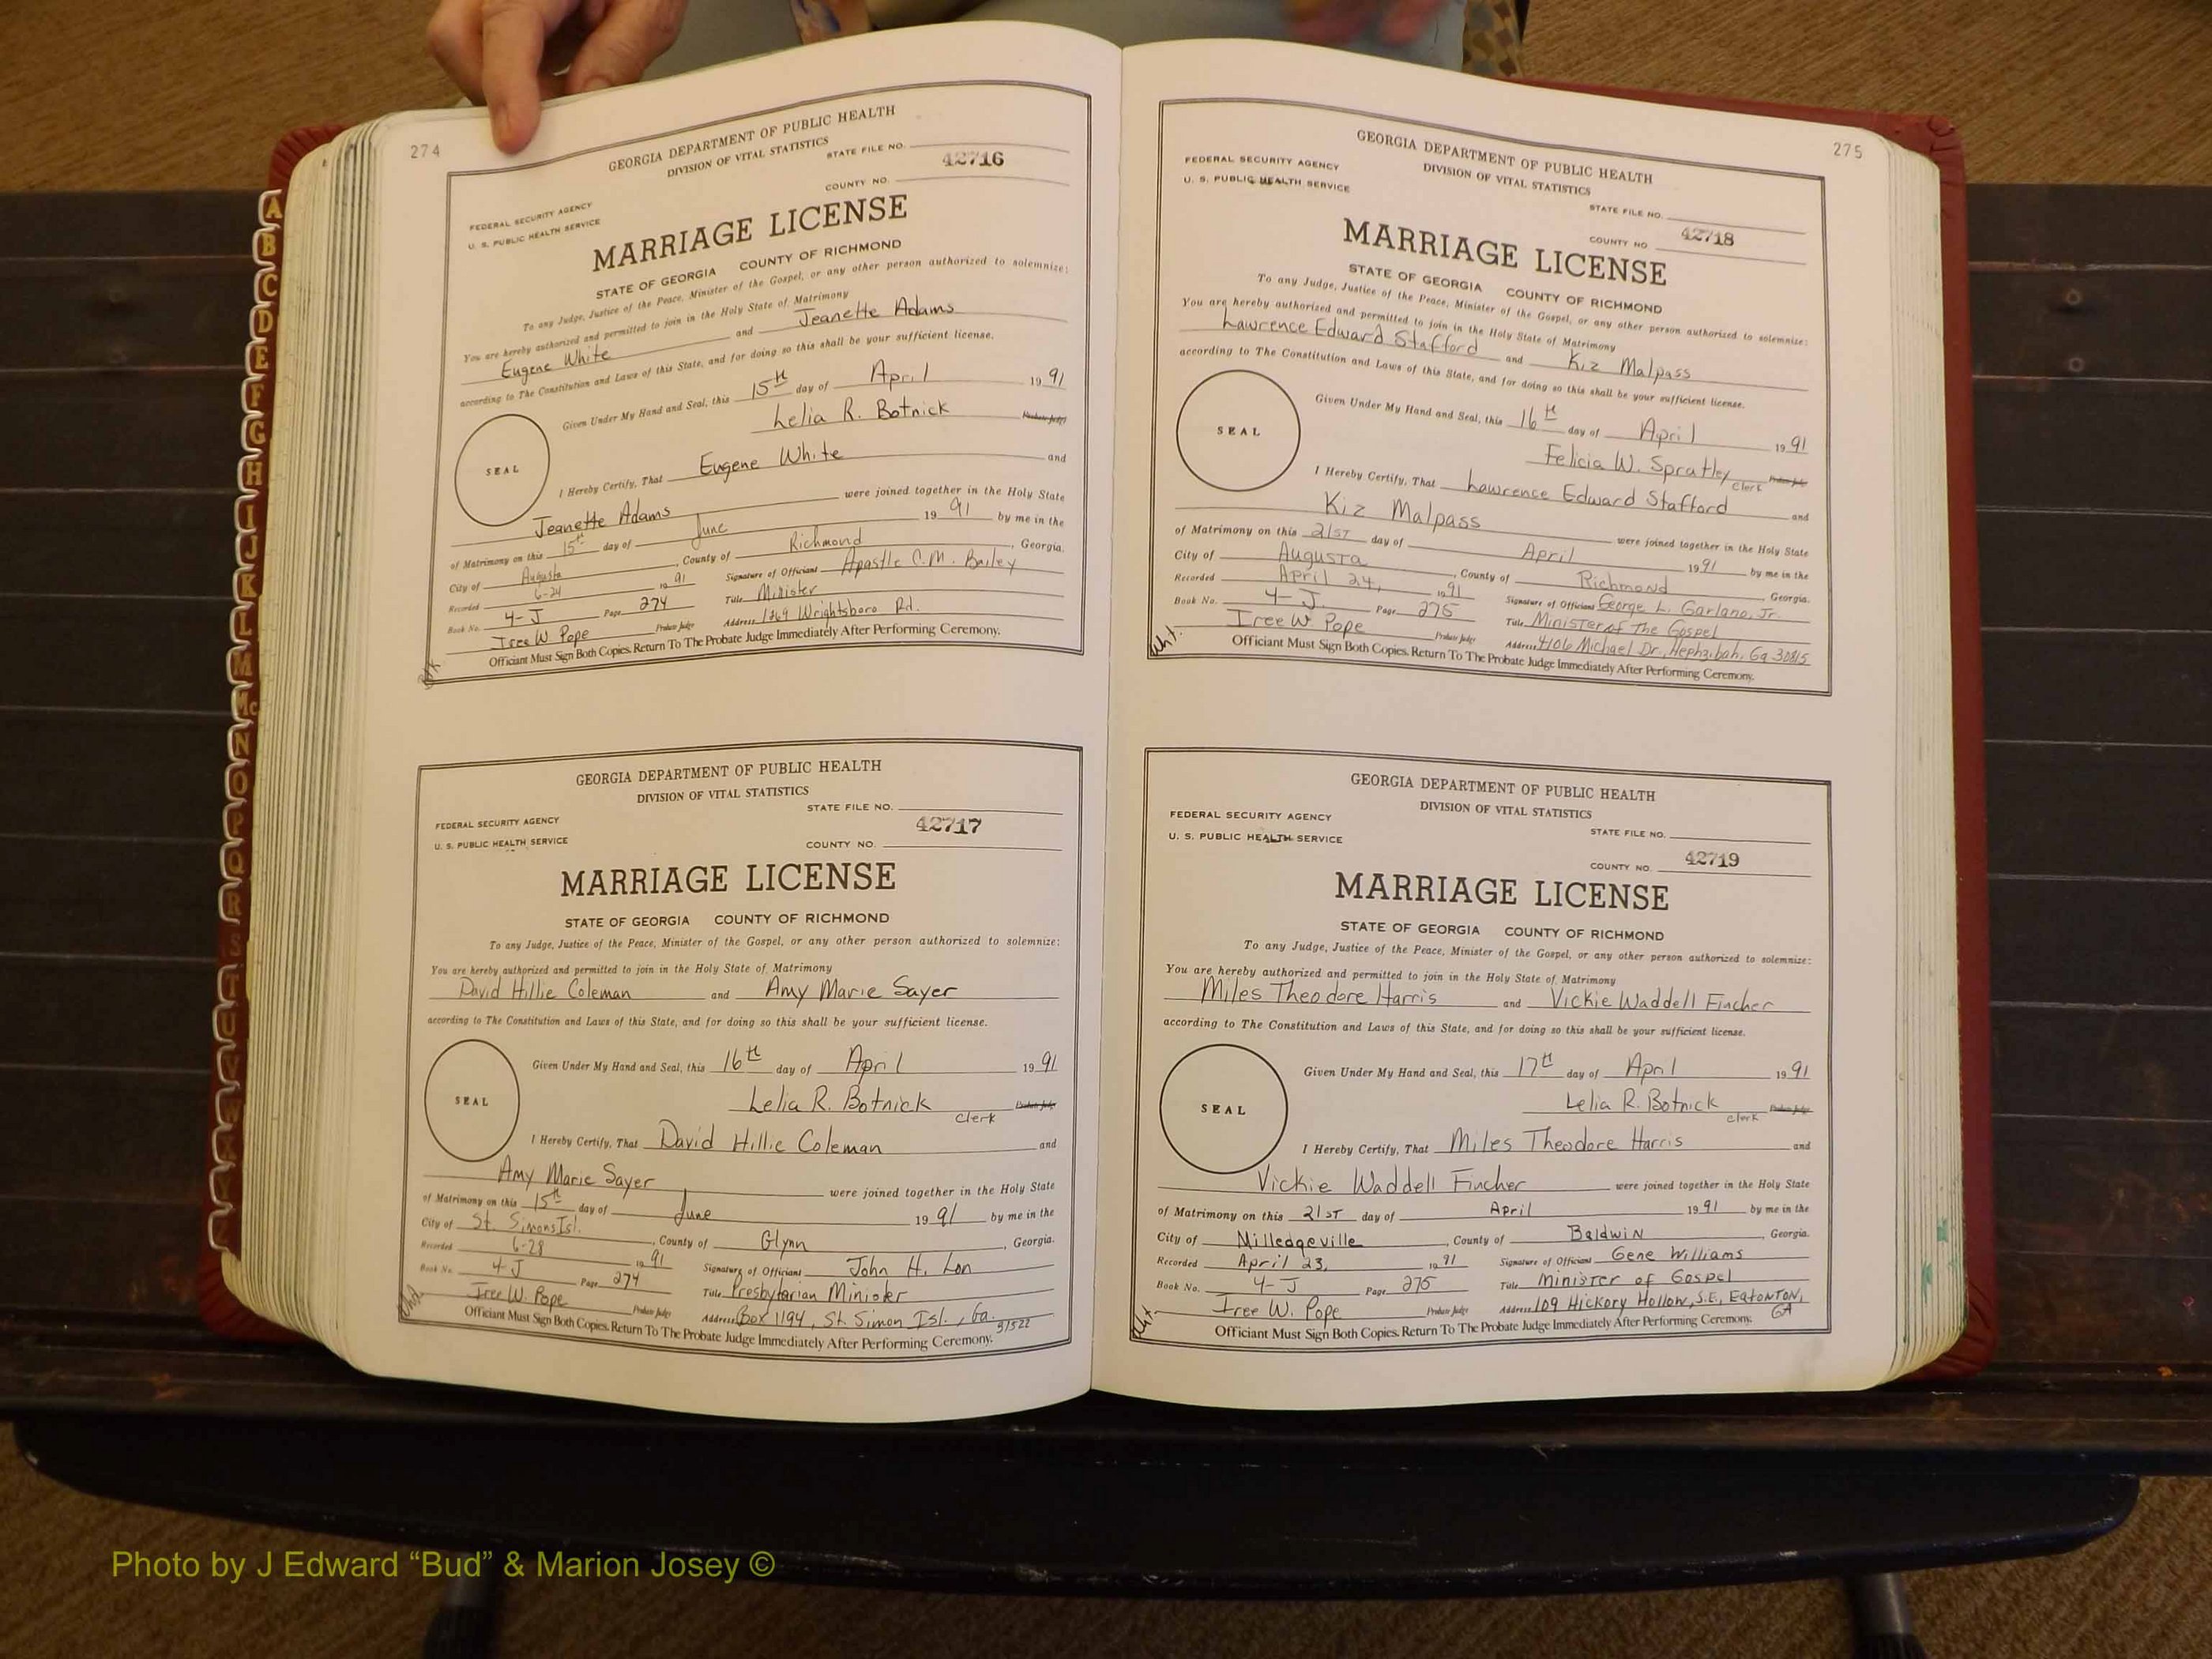 274
GEORGIA DEPARTMENT OF PUBLIC HEALTH
DIVISION OF VITAL STATISTICS
STATE FILE NO.
42716
COUNTY NO.
FEDERAL SECURITY AGENCY
U. S. PUBLIC HEALTH SERVICE
MARRIAGE LICENSE
STATE OF GEORGIA COUNTY OF RICHMOND
To any Judge, Justice of the Peace, Minister of the Gospel, or any other person authorized to solemnize:
You are hereby authorized and permitted to join in the Holy State of Matrimony
Eugene White and Jeanette Adams
according to The Constitution and Laws of this State, and for doing so this shall be your sufficient license.
Given Under My Hand and Seal, this 15th day of April 1991
Lelia R. Botnick Probate Judge
SEAL
I Hereby Certify, That Eugene White and
Jeanette Adams were joined together in the Holy State
of Matrimony on this 15th day of June 1991 by me in the
City of Augusta, County of Richmond, Georgia.
Recorded 6-24 1991 Signature of Officiant Apostle C.M. Bailey
Book No. 4-J Page 274 Title Minister
Iree W. Pope Probate Judge Address 1269 Wrightsboro Rd.
Officiant Must Sign Both Copies. Return To The Probate Judge Immediately After Performing Ceremony.
GEORGIA DEPARTMENT OF PUBLIC HEALTH
DIVISION OF VITAL STATISTICS
STATE FILE NO.
FEDERAL SECURITY AGENCY
42717
U. S. PUBLIC HEALTH SERVICE
COUNTY NO.
MARRIAGE LICENSE
STATE OF GEORGIA COUNTY OF RICHMOND
To any Judge, Justice of the Peace, Minister of the Gospel, or any other person authorized to solemnize:
You are hereby authorized and permitted to join in the Holy State of Matrimony
David Hillie Coleman and Amy Marie Sayer
according to The Constitution and Laws of this State, and for doing so this shall be your sufficient license.
Given Under My Hand and Seal, this 16th day of April 1991
Lelia R. Botnick Probate Judge
Clerk
SEAL
I Hereby Certify, That David Hillie Coleman and
Amy Marie Sayer were joined together in the Holy State
of Matrimony on this 15th day of June 1991 by me in the
City of St. Simons Isl., County of Glynn, Georgia.
Recorded 6-28 1991 Signature of Officiant John H. Lon
Book No. 4-J Page 274 Title Presbyterian Minister
Iree W. Pope Probate Judge Address Box 1194, St. Simon Isl., Ga. 31522
Officiant Must Sign Both Copies. Return To The Probate Judge Immediately After Performing Ceremony.
275
GEORGIA DEPARTMENT OF PUBLIC HEALTH
DIVISION OF VITAL STATISTICS
FEDERAL SECURITY AGENCY
U. S. PUBLIC HEALTH SERVICE
STATE FILE NO.
COUNTY NO 42718
MARRIAGE LICENSE
STATE OF GEORGIA COUNTY OF RICHMOND
To any Judge, Justice of the Peace, Minister of the Gospel, or any other person authorized to solemnize:
You are hereby authorized and permitted to join in the Holy State of Matrimony
Lawrence Edward Stafford and Kiz Malpass
according to The Constitution and Laws of this State, and for doing so this shall be your sufficient license.
Given Under My Hand and Seal, this 16th day of April 1991
Felicia W. Spratley Clerk Probate Judge
SEAL
I Hereby Certify, That Lawrence Edward Stafford and
Kiz Malpass were joined together in the Holy State
of Matrimony on this 21ST day of April 1991 by me in the
City of Augusta, County of Richmond Georgia.
Recorded April 24, 1991 Signature of Officiant George L. Garland, Jr.
Book No. 4-J. Page 275 Title Minister of The Gospel
Iree W. Pope Probate Judge Address 4106 Michael Dr., Hephzibah, Ga 30815
Officiant Must Sign Both Copies. Return To The Probate Judge Immediately After Performing Ceremony.
Wht.
GEORGIA DEPARTMENT OF PUBLIC HEALTH
DIVISION OF VITAL STATISTICS
FEDERAL SECURITY AGENCY
STATE FILE NO.
U. S. PUBLIC HEALTH SERVICE
COUNTY NO. 42719
MARRIAGE LICENSE
STATE OF GEORGIA COUNTY OF RICHMOND
To any Judge, Justice of the Peace, Minister of the Gospel, or any other person authorized to solemnize:
You are hereby authorized and permitted to join in the Holy State of Matrimony
Miles Theodore Harris and Vickie Waddell Fincher
according to The Constitution and Laws of this State, and for doing so this shall be your sufficient license.
Given Under My Hand and Seal, this 17th day of April 1991
Lelia R. Botnick Probate Judge
clerk
SEAL
I Hereby Certify, That Miles Theodore Harris and
Vickie Waddell Fincher were joined together in the Holy State
of Matrimony on this 21ST day of April 1991 by me in the
City of Milledgeville, County of Baldwin Georgia.
Recorded April 23, 1991 Signature of Officiant Gene Williams
Book No. 4-J Page 275 Title Minister of Gospel
Iree W. Pope Probate Judge Address 109 Hickory Hollow, S.E., Eatonton, GA
Officiant Must Sign Both Copies. Return To The Probate Judge Immediately After Performing Ceremony.
Wht.
A
B
C
D
E
F
G
H
I
J
K
L
M
Mc
N
O
P
Q
R
S
T
U
V
W
Photo by J Edward “Bud” & Marion Josey ©